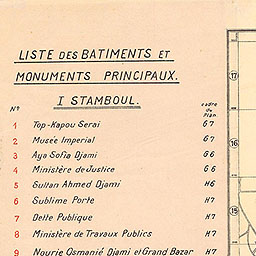 LISTE DES BATIMENTS ET
MONUMENTS PRINCIPAUX.
I STAMBOUL.
No cadre du Plan
1 Top-Kapou Serai G 7
2 Musée Imperial G 7
3 Aya Sofia Djami G 6
4 Ministère de Justice G 6
5 Sultan Ahmed Djami H6
6 Sublime Porte H7
7 Dette Publique H7
8 Ministère de Travaux Publics H7
9 Nourie Osmanié Djami et Grand Bazar H7
17
16
15